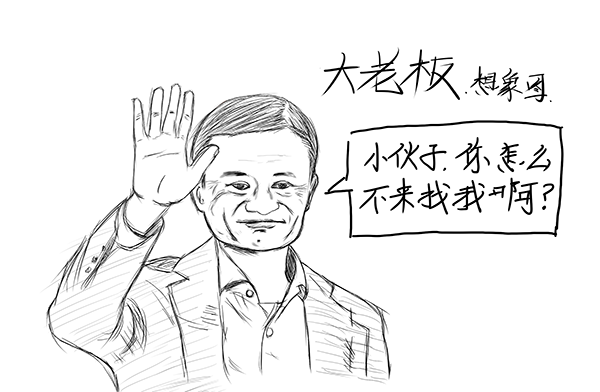 大老板.想象图.
小伙子.你怎么
不来找我啊?